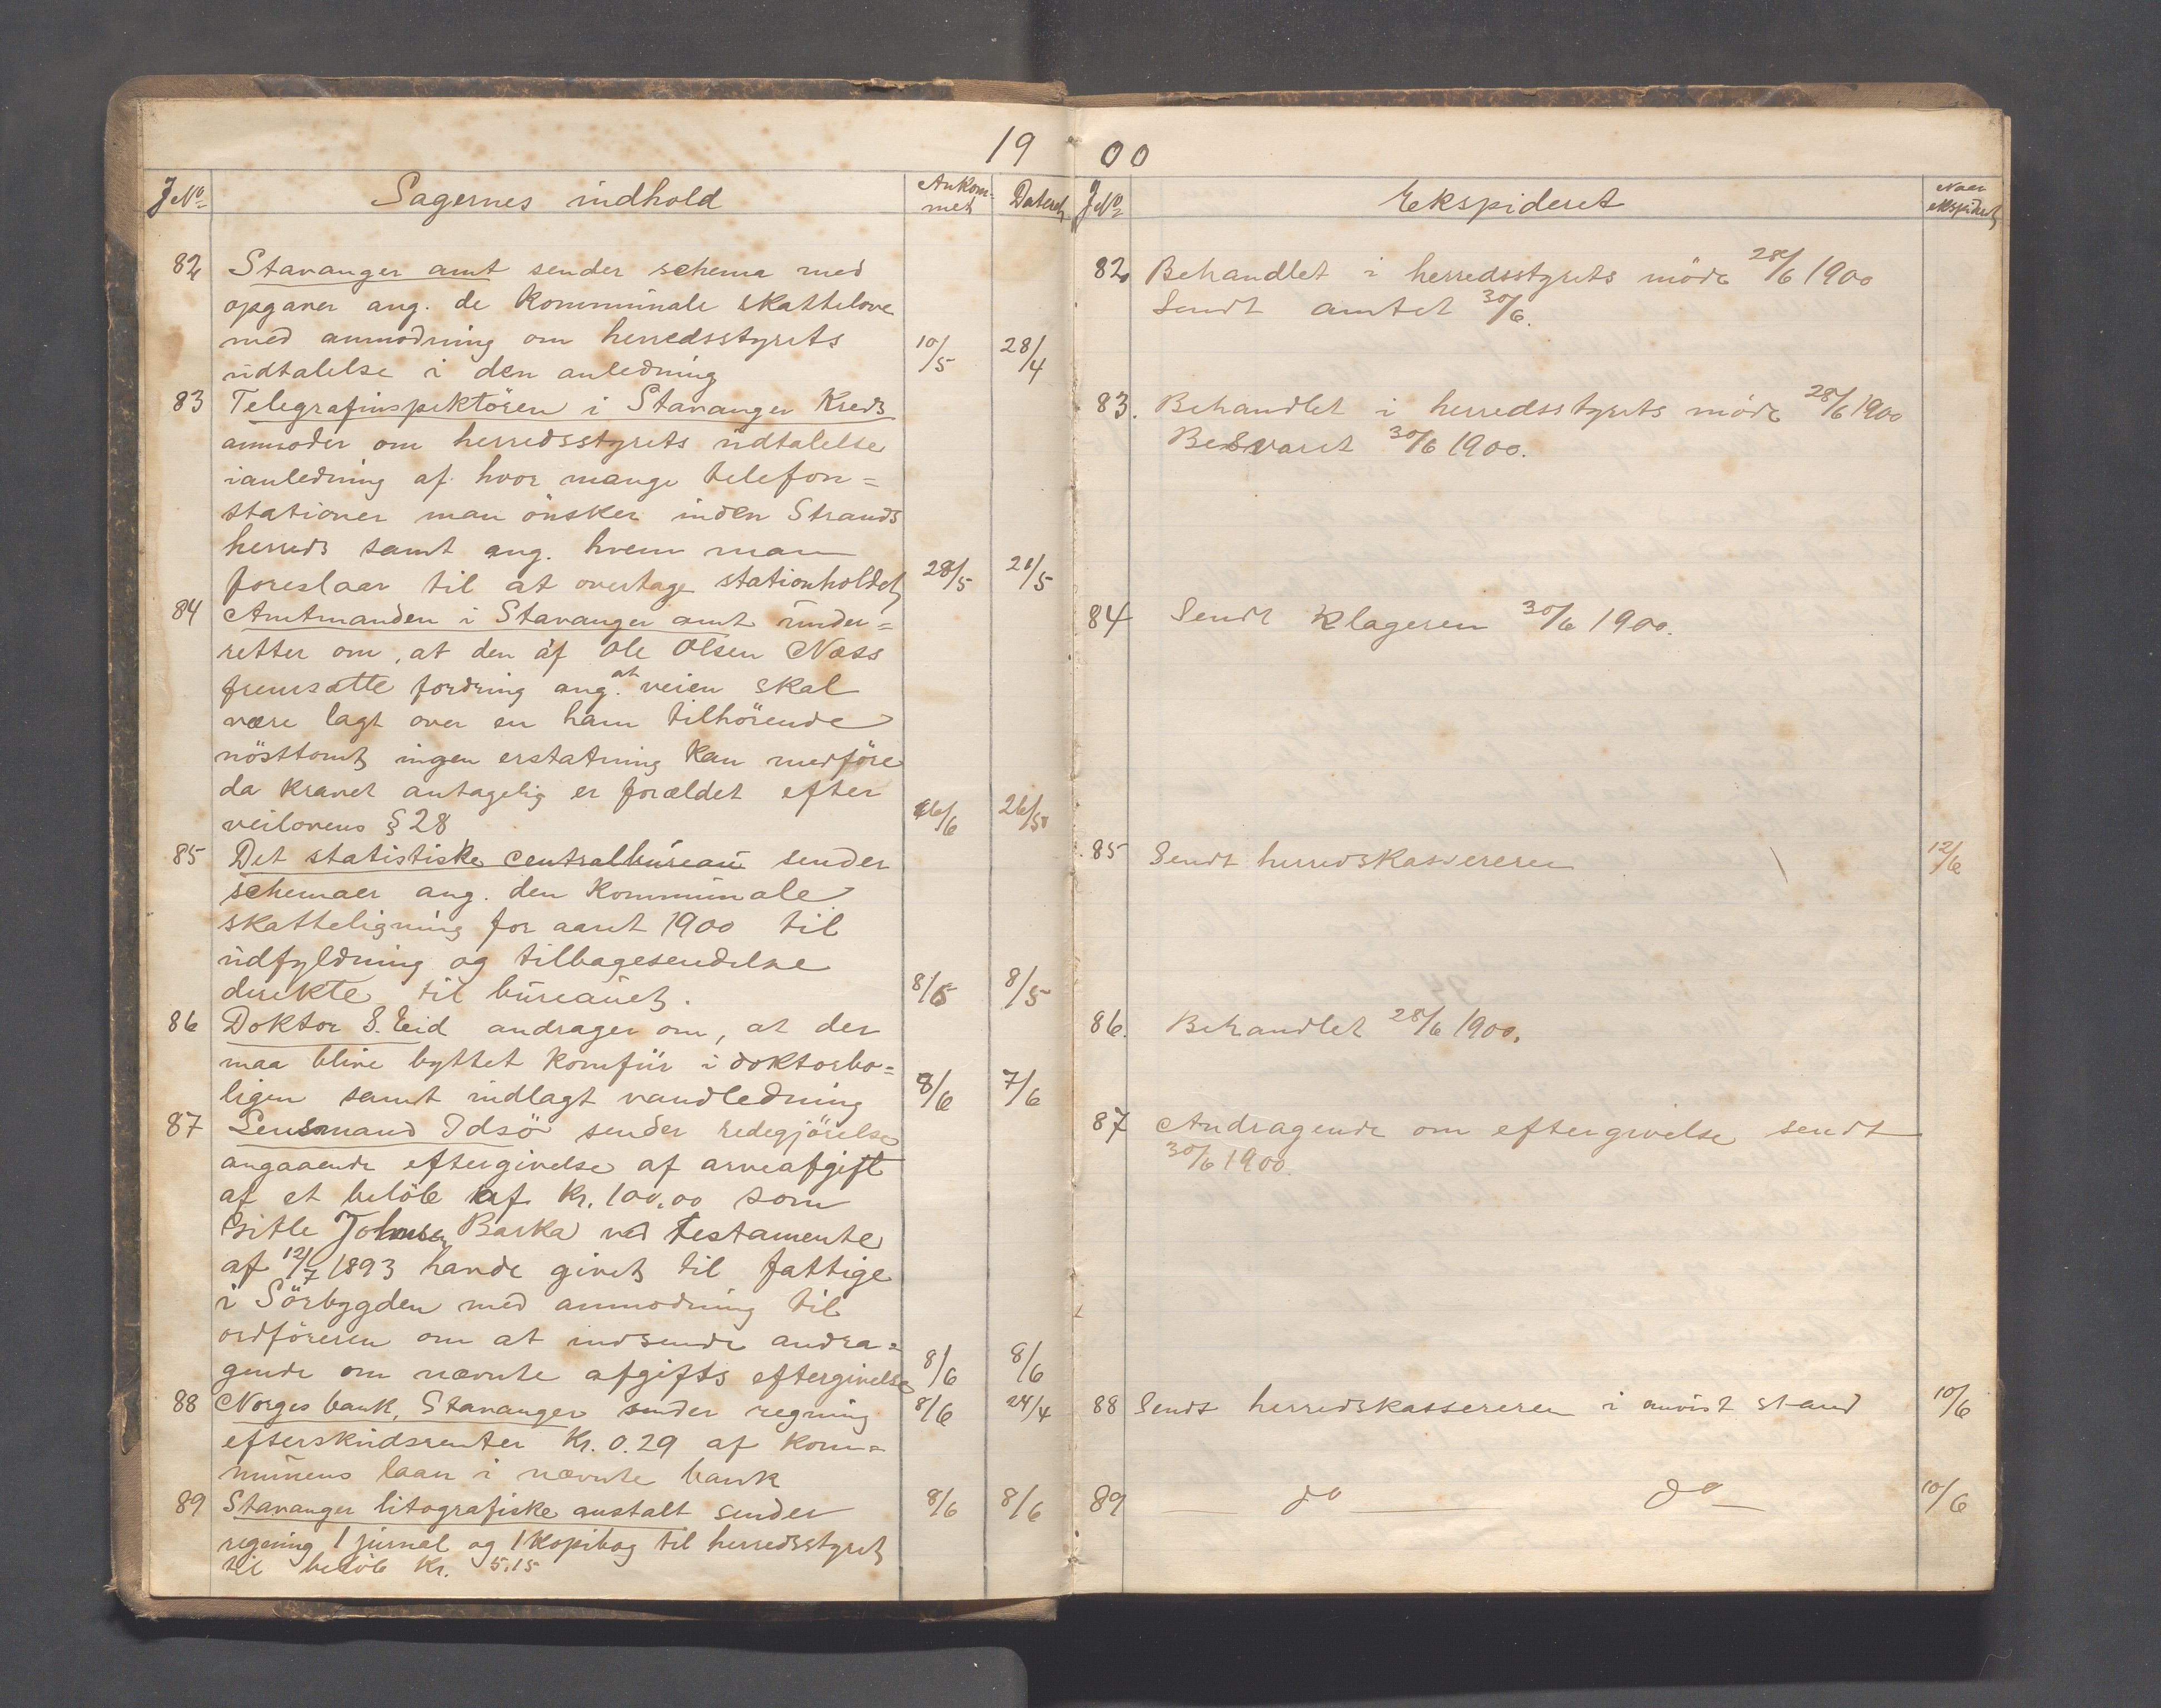 19
J No
Sagernes indhold
Ankom-
met
Dateret
82 Stavanger amt sender schema med
opgaver ang. de kommunale skattelove
med anmodning om herredsstyrets
udtalelse i den anledning 10/5 28/4
83 Telegrafinspektören i Stavanger Kreds
anmoder om herredsstyrets udtalelse
ianledning af hvor mange telefon=
stationer man önsker inden Strands
herreds samt ang. hvem man
foreslaar til at overtage stationholdet 28/5 21/5
84 Amtmanden i Stavanger amt under=
retter om, at den af Ole Olsen Næss
fremsatte fordring ang. at veien skal
være lagt over en ham tilhörende
nösttomt ingen erstatning kan medföre
da kravet antagelig er forældet efter
veilovens § 28 6/6 26/5
85 Det statistiske centralbureau sender
schemaer ang. den kommunale
skatteligning for aaret 1900 til
udfyldning og tilbagesendelse
direkte til bureauet. 8/6 8/5
86 Doktor S. Eid andrager om, at der
maa blive byttet komfur i doktorbo=
ligen samt indlagt vandledning 8/6 7/6
87 Lensmand Idsö sender redegjörelse
angaaende eftergivelse af arveafgift
af et belöb af Kr. 100,00 som
Gitle Johnsen Barka ved testamente
af 12/7 1893 havde givet til fattige
i Sörbygden med anmodning til
ordföreren om at indsende andra=
gende om nævnte afgifts eftergivelse 8/6 8/6
88 Norges bank, Stavanger sender regning 8/6 24/4
efterskudsrenter Kr. 0.29 af kom=
munens laan i nævnte bank
89 Stavanger litografiske anstalt sender 8/6 8/6
regning 1 jurnal og 1 kopibog til herredsstyret
til belöb Kr. 5.15
00
J No
Ekspideret
Naar
ekspideret
82. Behandlet i herredsstyrets möde 28/6 1900
Sendt amtet 30/6.
83. Behandlet i herredsstyrets möde 28/6 1900
Besvaret 30/6 1900.
84 Sendt klageren 30/6 1900.
85 Sendt herredskassereren 12/6
86. Behandlet 28/6 1900.
87 Andragende om eftergivelse sendt
30/6 1900.
88 Sendt herredskassereren i anvist stand 10/6
89 — do — do — 10/6